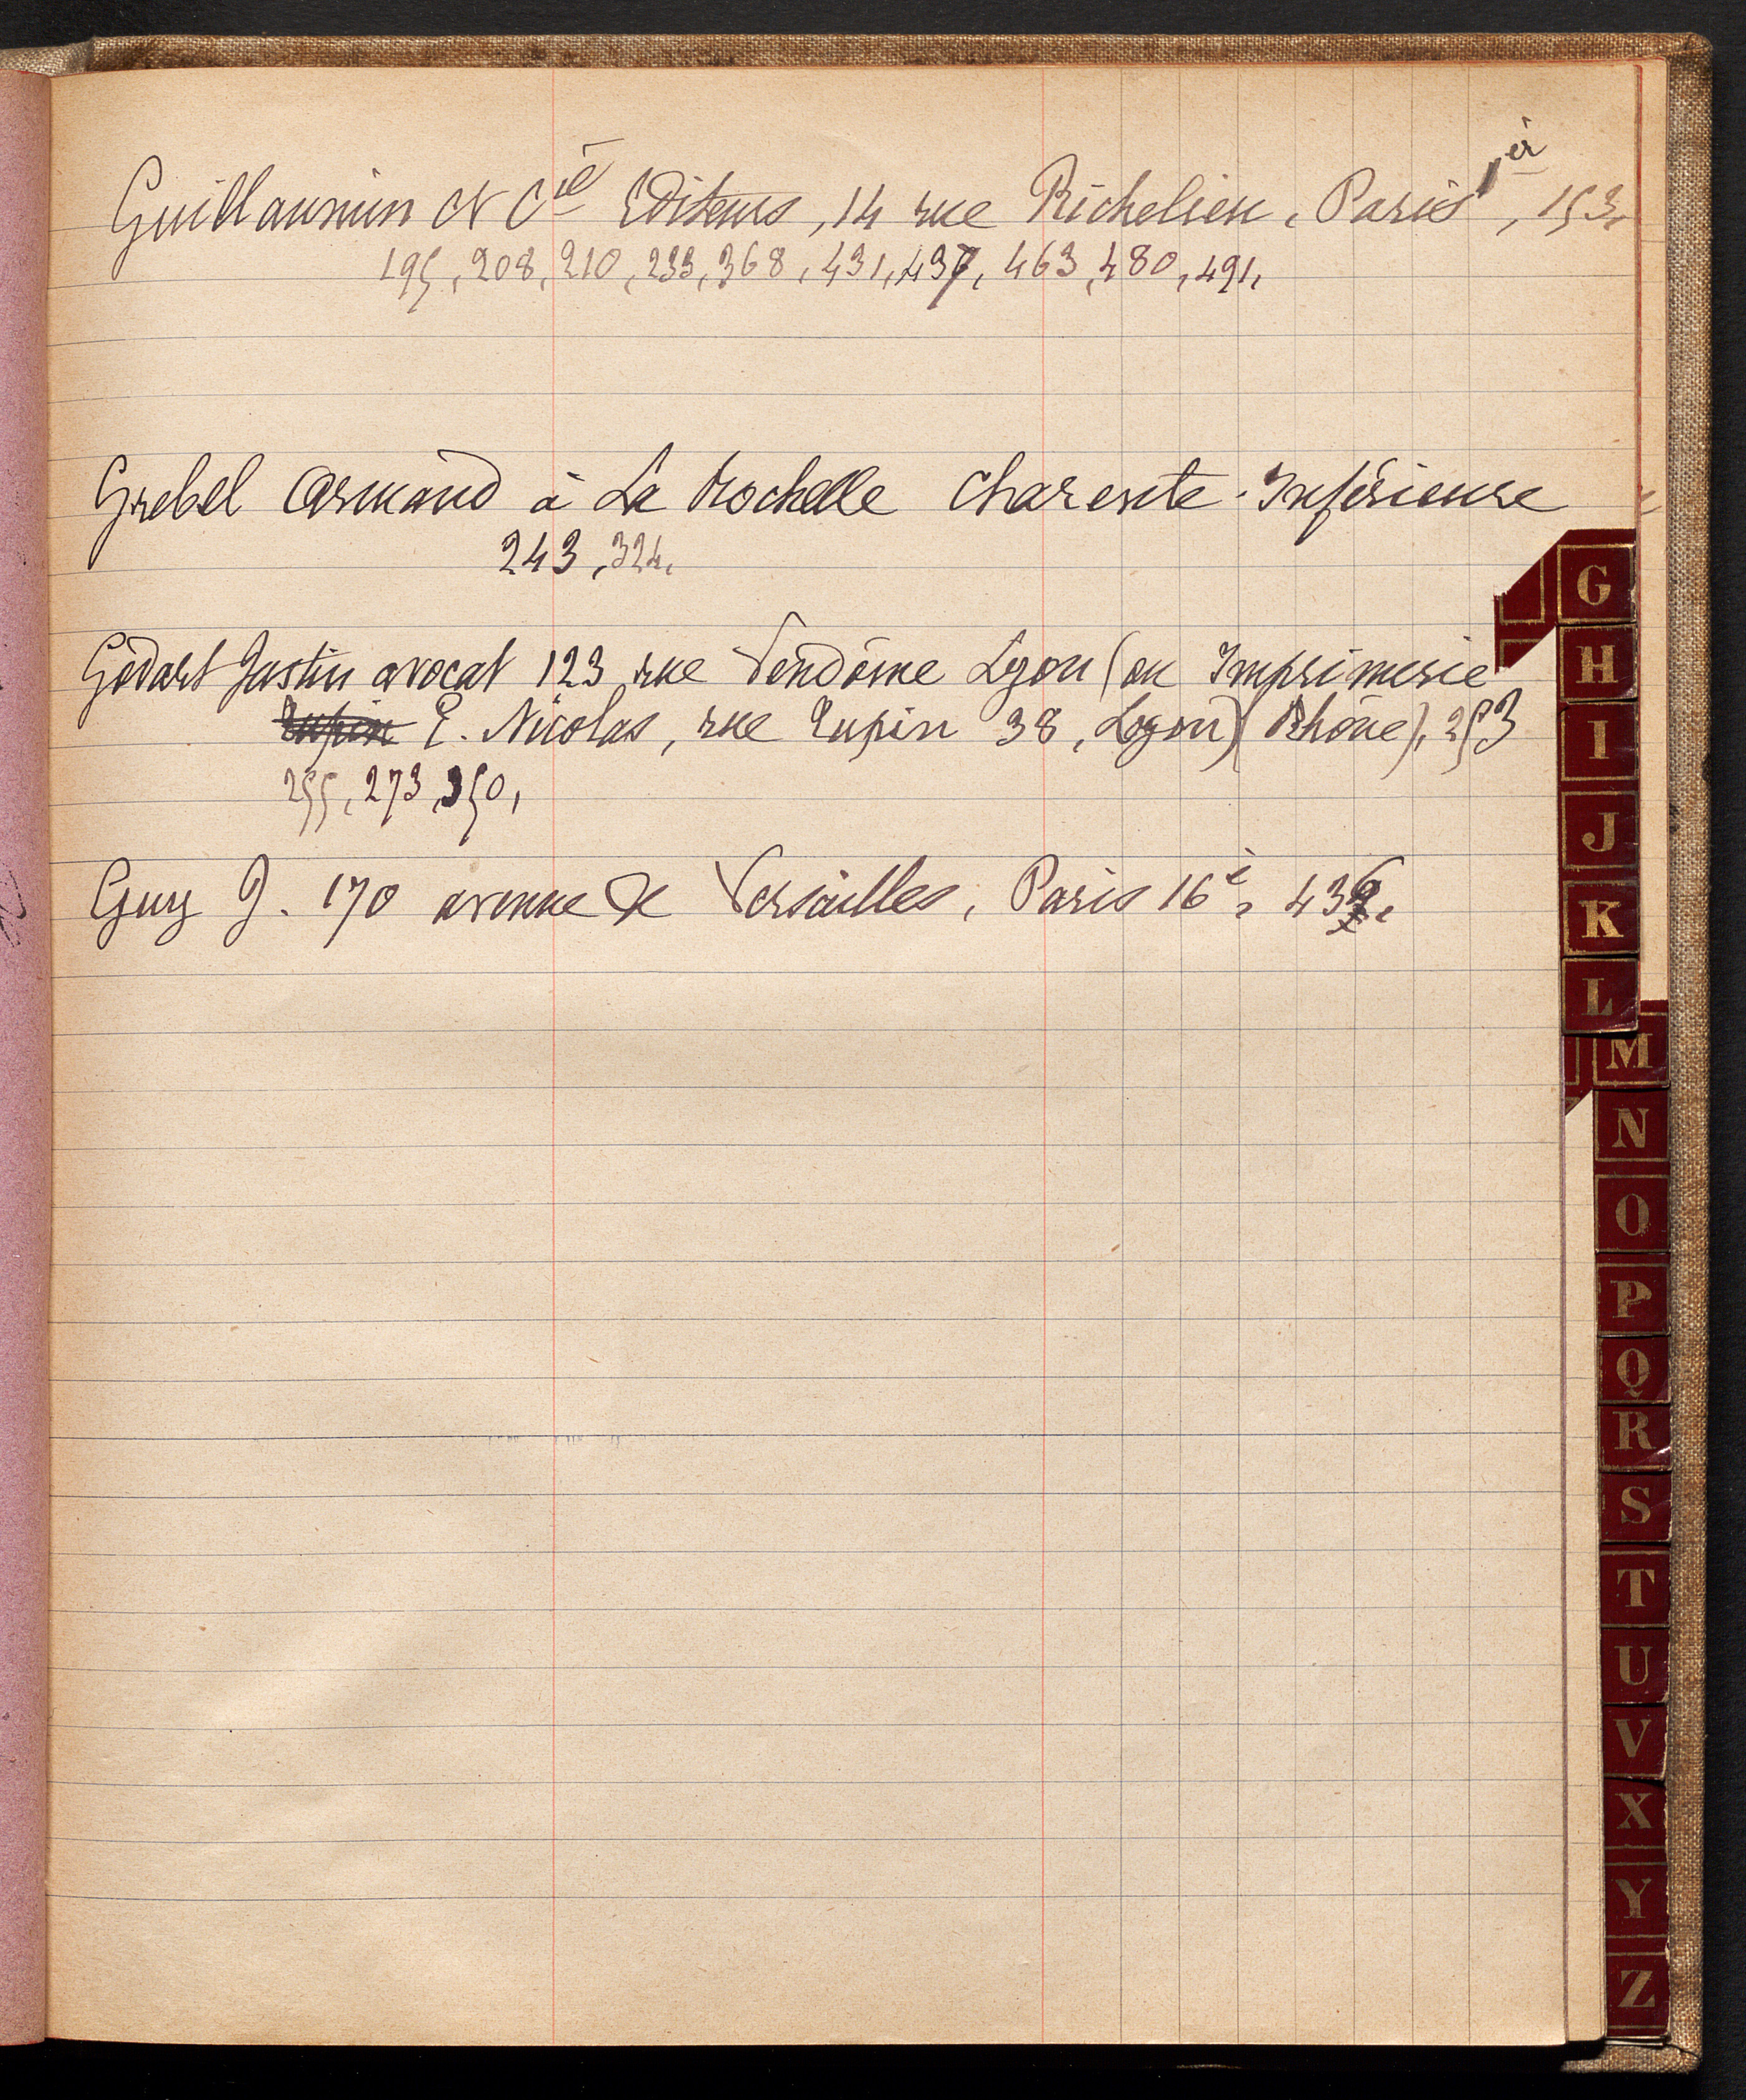 Guillaumin et Cie Editeurs, 14 rue Richelieu, Paris 1er, 153,
195, 208, 210, 233, 368, 431, 437, 463, 480, 491,
Grebel Armand à La Rochelle Charente-Inférieure
243, 324,
Godart Justin avocat 123 rue Vendôme Lyon (ou Imprimerie
Tupin E. Nicolas, rue Tupin 38, Lyon) (Rhône), 253
255, 273, 350,
Guy J. 170 avenue de Versailles, Paris 16e, 436,
G
H
I
J
K
L
M
N
O
P
Q
R
S
T
U
V
X
Y
Z